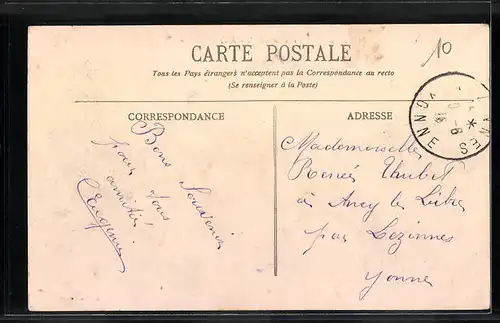 CARTE POSTALE
Tous les Pays étrangers n'acceptent pas la Correspondance au recto
(Se renseigner à la Poste)
CORRESPONDANCE
ADRESSE
10
Bons Souvenirs
pour tous
amitiés
Eugénie
Mademoiselle
Renée
à Ancy le Libre
par Lézinnes
Yonne
YONNE